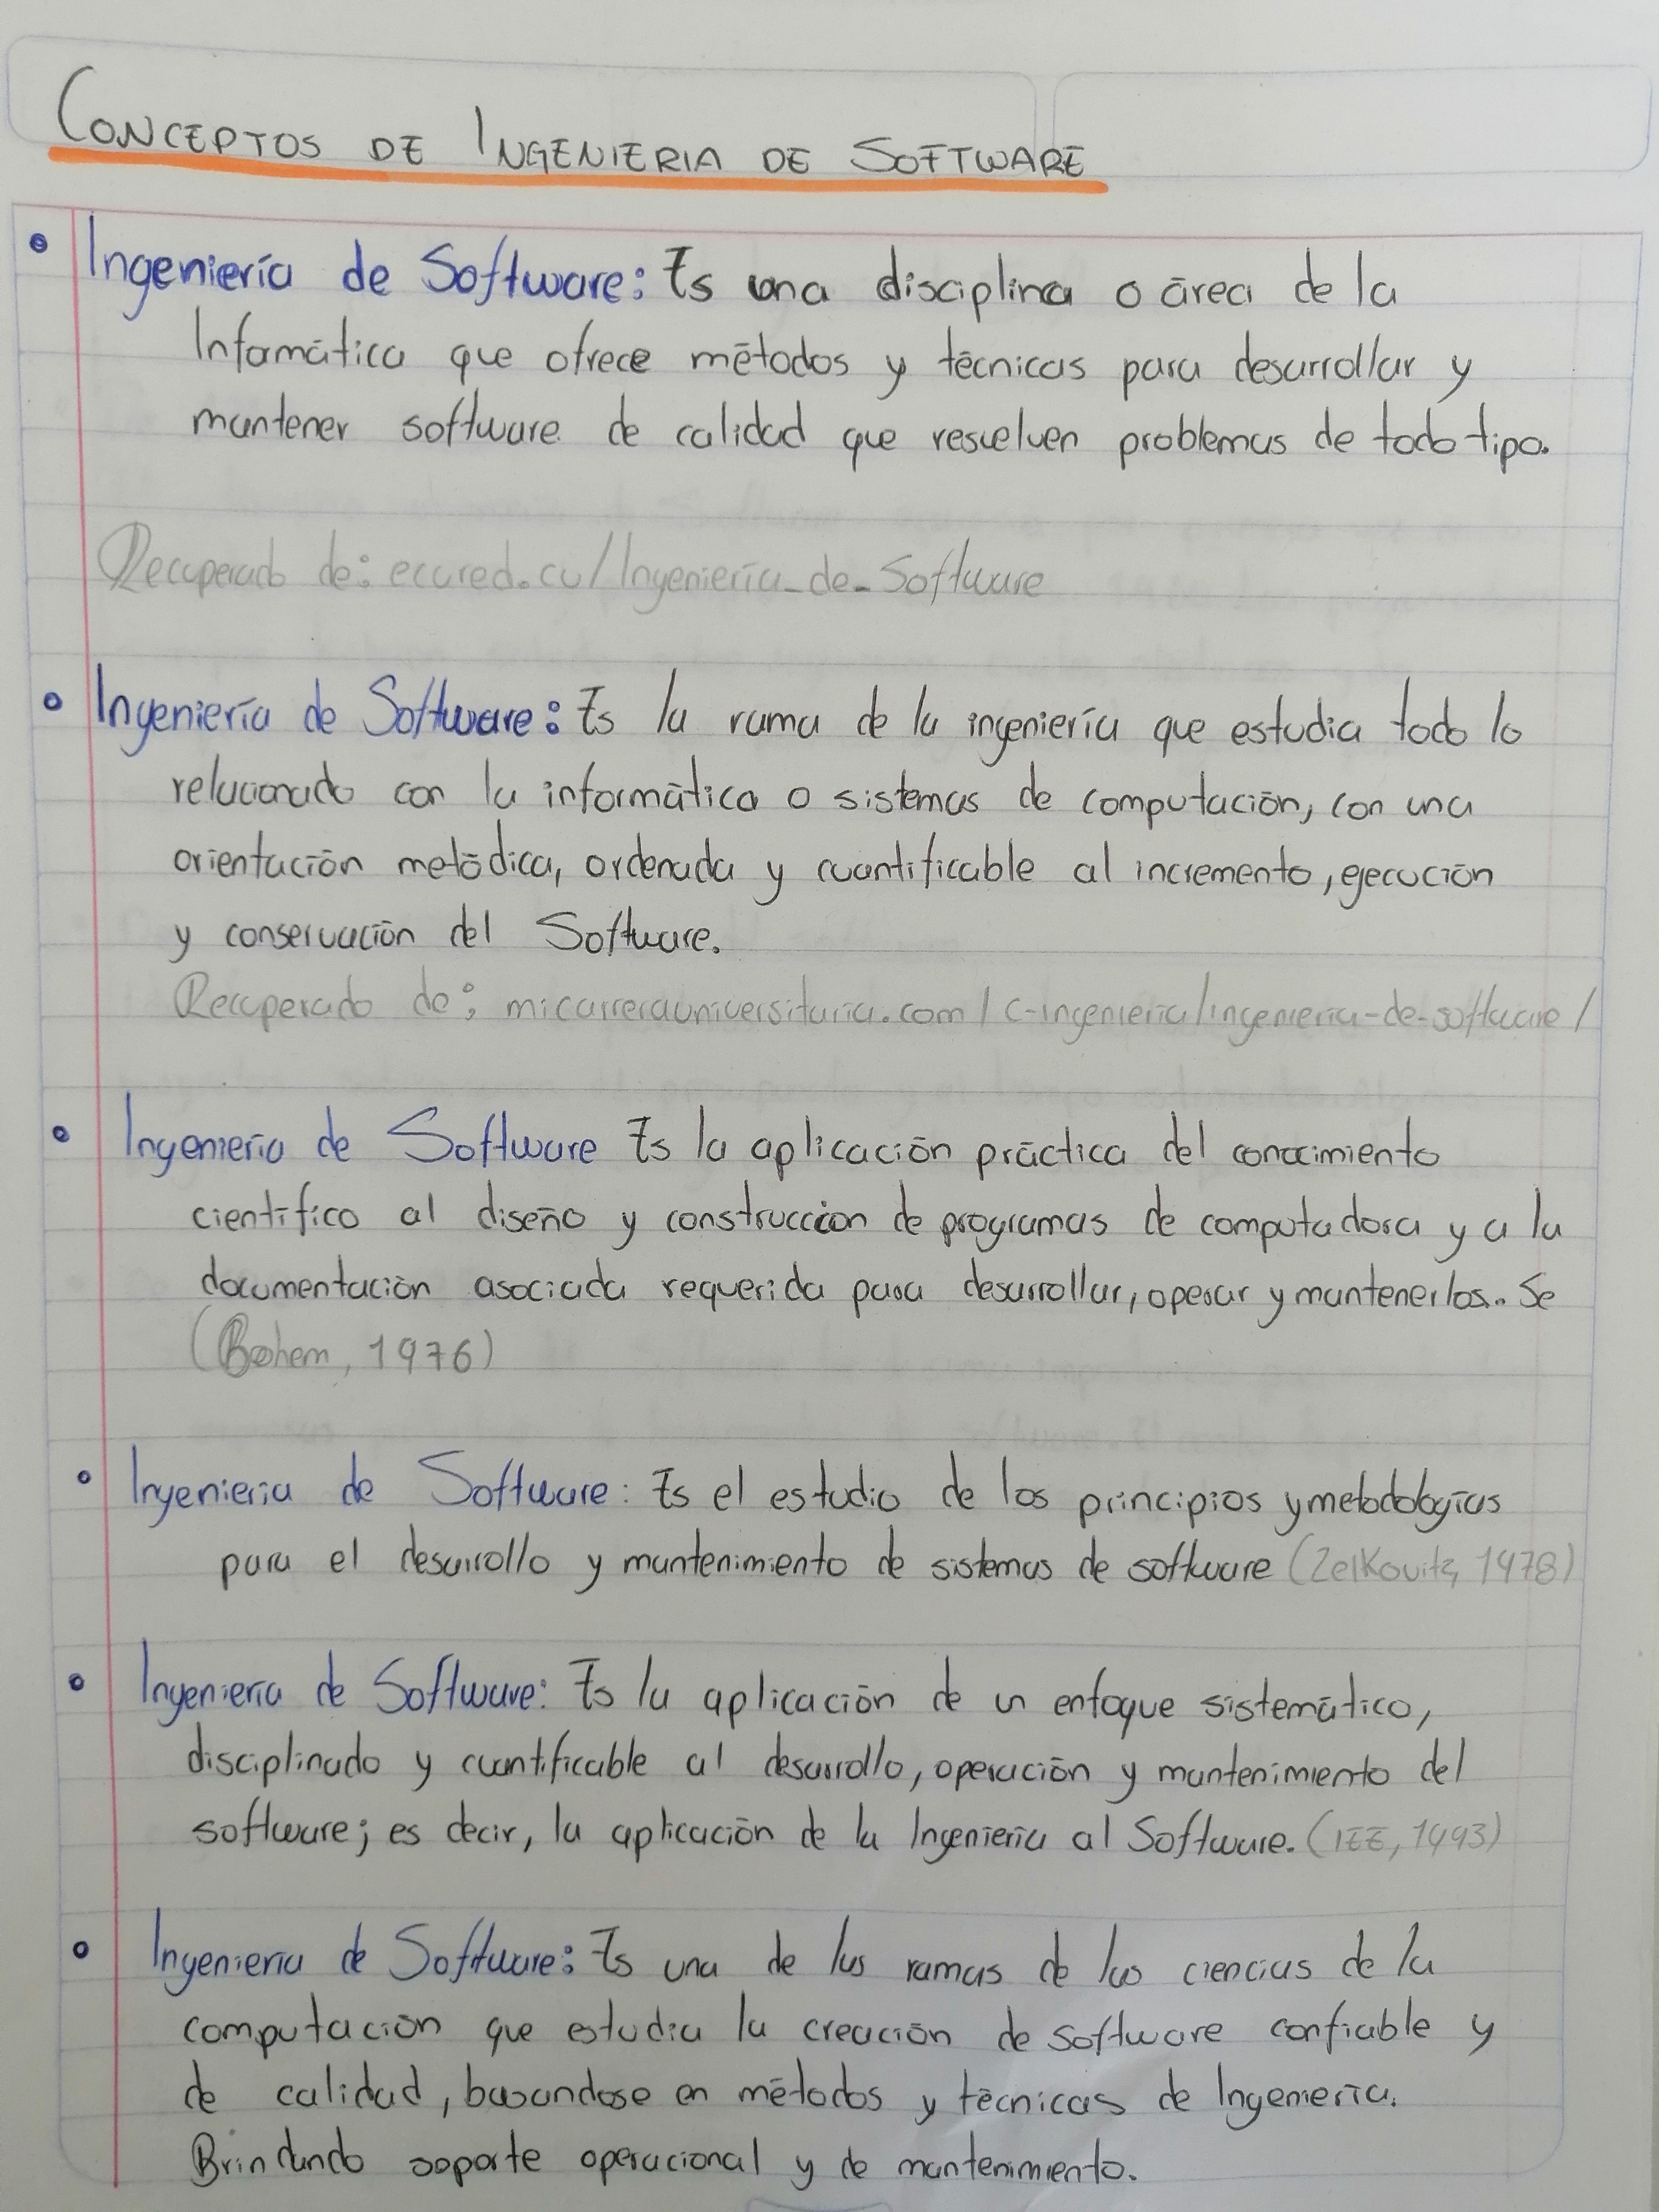 CONCEPTOS DE INGENIERIA DE SOFTWARE
• Ingeniería de Software: Es una disciplina o área de la
Informática que ofrece métodos y técnicas para desarrollar y
mantener software de calidad que resuelven problemas de todo tipo.
Recuperado de: ecured.cu/Ingeniería_de_Software
• Ingeniería de Software: Es la rama de la ingeniería que estudia todo lo
relacionado con la informática o sistemas de computación, con una
orientación metódica, ordenada y cuantificable al incremento, ejecución
y conservación del Software.
Recuperado de: micarrerauniversitaria.com/c-ingenieria/ingenieria-de-software/
• Ingeniería de Software Es la aplicación práctica del conocimiento
científico al diseño y construcción de programas de computadora y a la
documentación asociada requerida para desarrollar, operar y mantenerlos. Se
(Bohem, 1976)
• Ingenieria de Software: Es el estudio de los principios y metodologías
para el desarrollo y mantenimiento de sistemas de software (Zelkovitz, 1978)
• Ingenieria de Software: Es la aplicación de un enfoque sistemático,
disciplinado y cuantificable al desarrollo, operación y mantenimiento del
software; es decir, la aplicación de la Ingenieria al Software. (IEE, 1993)
• Ingenieria de Software: Es una de las ramas de las ciencias de la
computación que estudia la creación de software confiable y
de calidad, basandose en métodos y técnicas de Ingeniería.
Brindando soporte operacional y de mantenimiento.